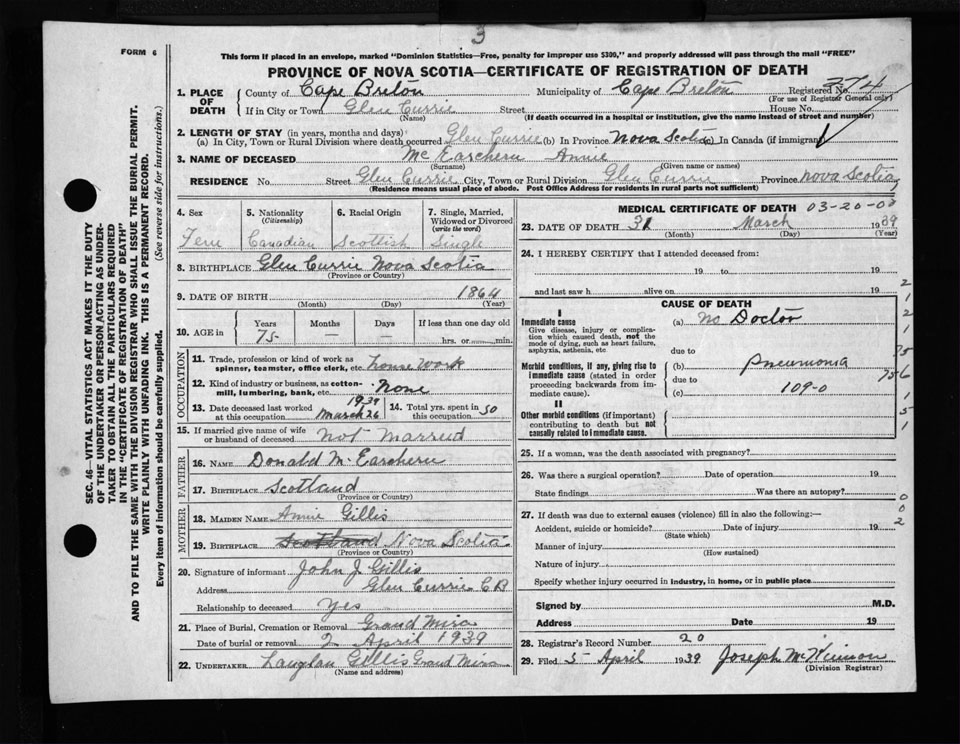 3
FORM 6
This form if placed in an envelope, marked "Dominion Statistics—Free, penalty for improper use $300," and properly addressed will pass through the mail "FREE"
PROVINCE OF NOVA SCOTIA—CERTIFICATE OF REGISTRATION OF DEATH
1. PLACE OF DEATH County of Cape Breton Municipality of Cape Breton Registered No. 374
(For use of Registrar General only)
If in City or Town Glen Currie Street House No.
(Name) (If death occurred in a hospital or institution, give the name instead of street and number)
2. LENGTH OF STAY (in years, months and days)
(a) In City, Town or Rural Division where death occurred Glen Currie (b) In Province Nova Scotia (c) In Canada (if immigrant)
3. NAME OF DECEASED McEarchern Annie
(Surname) (Given name or names)
RESIDENCE No. Street Glen Currie City, Town or Rural Division Glen Currie Province Nova Scotia
(Residence means usual place of abode. Post Office Address for residents in rural parts not sufficient)
4. Sex 5. Nationality (Citizenship) 6. Racial Origin 7. Single, Married, Widowed or Divorced (write the word)
Fem Canadian Scottish Single
8. BIRTHPLACE Glen Currie Nova Scotia
(Province or Country)
9. DATE OF BIRTH 1864
(Month) (Day) (Year)
10. AGE in Years Months Days If less than one day old
75 — — hrs. or min.
OCCUPATION
11. Trade, profession or kind of work as spinner, teamster, office clerk, etc. House Work
12. Kind of industry or business, as cotton-mill, lumbering, bank, etc. None
13. Date deceased last worked at this occupation 1939 March 26 14. Total yrs. spent in this occupation 50
15. If married give name of wife or husband of deceased Not Married
FATHER
16. NAME Donald McEarchern
17. BIRTHPLACE Scotland
(Province or Country)
MOTHER
18. MAIDEN NAME Annie Gillis
19. BIRTHPLACE Scotland Nova Scotia
(Province or Country)
20. Signature of informant John J. Gillis
Address Glen Currie C B
Relationship to deceased Yes
21. Place of Burial, Cremation or Removal Grand Mira
Date of burial or removal 2 April 1939
22. UNDERTAKER Gillis Grand Mira
(Name and address)
MEDICAL CERTIFICATE OF DEATH 03-20-0
23. DATE OF DEATH 31 March 1939
(Month) (Day) (Year)
24. I HEREBY CERTIFY that I attended deceased from:
19 to 19
and last saw h alive on 19
CAUSE OF DEATH
I
Immediate cause
Give disease, injury or complication which caused death, not the mode of dying, such as heart failure, asphyxia, asthenia, etc
(a) No Doctor
due to
Morbid conditions, if any, giving rise to immediate cause (stated in order proceeding backwards from immediate cause).
(b) Pneumonia
due to
(c) 109-0
II
Other morbid conditions (if important) contributing to death but not causally related to immediate cause.
25. If a woman, was the death associated with pregnancy?
26. Was there a surgical operation? Date of operation 19
State findings Was there an autopsy?
27. If death was due to external causes (violence) fill in also the following:—
Accident, suicide or homicide? Date of injury 19
(State which)
Manner of injury
(How sustained)
Nature of injury
Specify whether injury occurred in industry, in home, or in public place
Signed by M.D.
Address Date 19
28. Registrar's Record Number 20
29. Filed 5 April 1939 Joseph
(Division Registrar)
SEC. 46—VITAL STATISTICS ACT MAKES IT THE DUTY
OF THE UNDERTAKER OR PERSON ACTING AS UNDER-
TAKER TO OBTAIN ALL THE PARTICULARS REQUIRED
IN THE "CERTIFICATE OF REGISTRATION OF DEATH"
AND TO FILE THE SAME WITH THE DIVISION REGISTRAR WHO SHALL ISSUE THE BURIAL PERMIT.
WRITE PLAINLY WITH UNFADING INK. THIS IS A PERMANENT RECORD.
Every item of information should be carefully supplied. (See reverse side for instructions.)